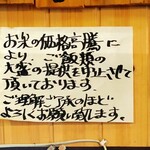 お米の価格高騰に
より、ご飯類の
大盛の提供を中止させて
頂いております。
ご理解ご了承のほど
よろしくお願い致します。